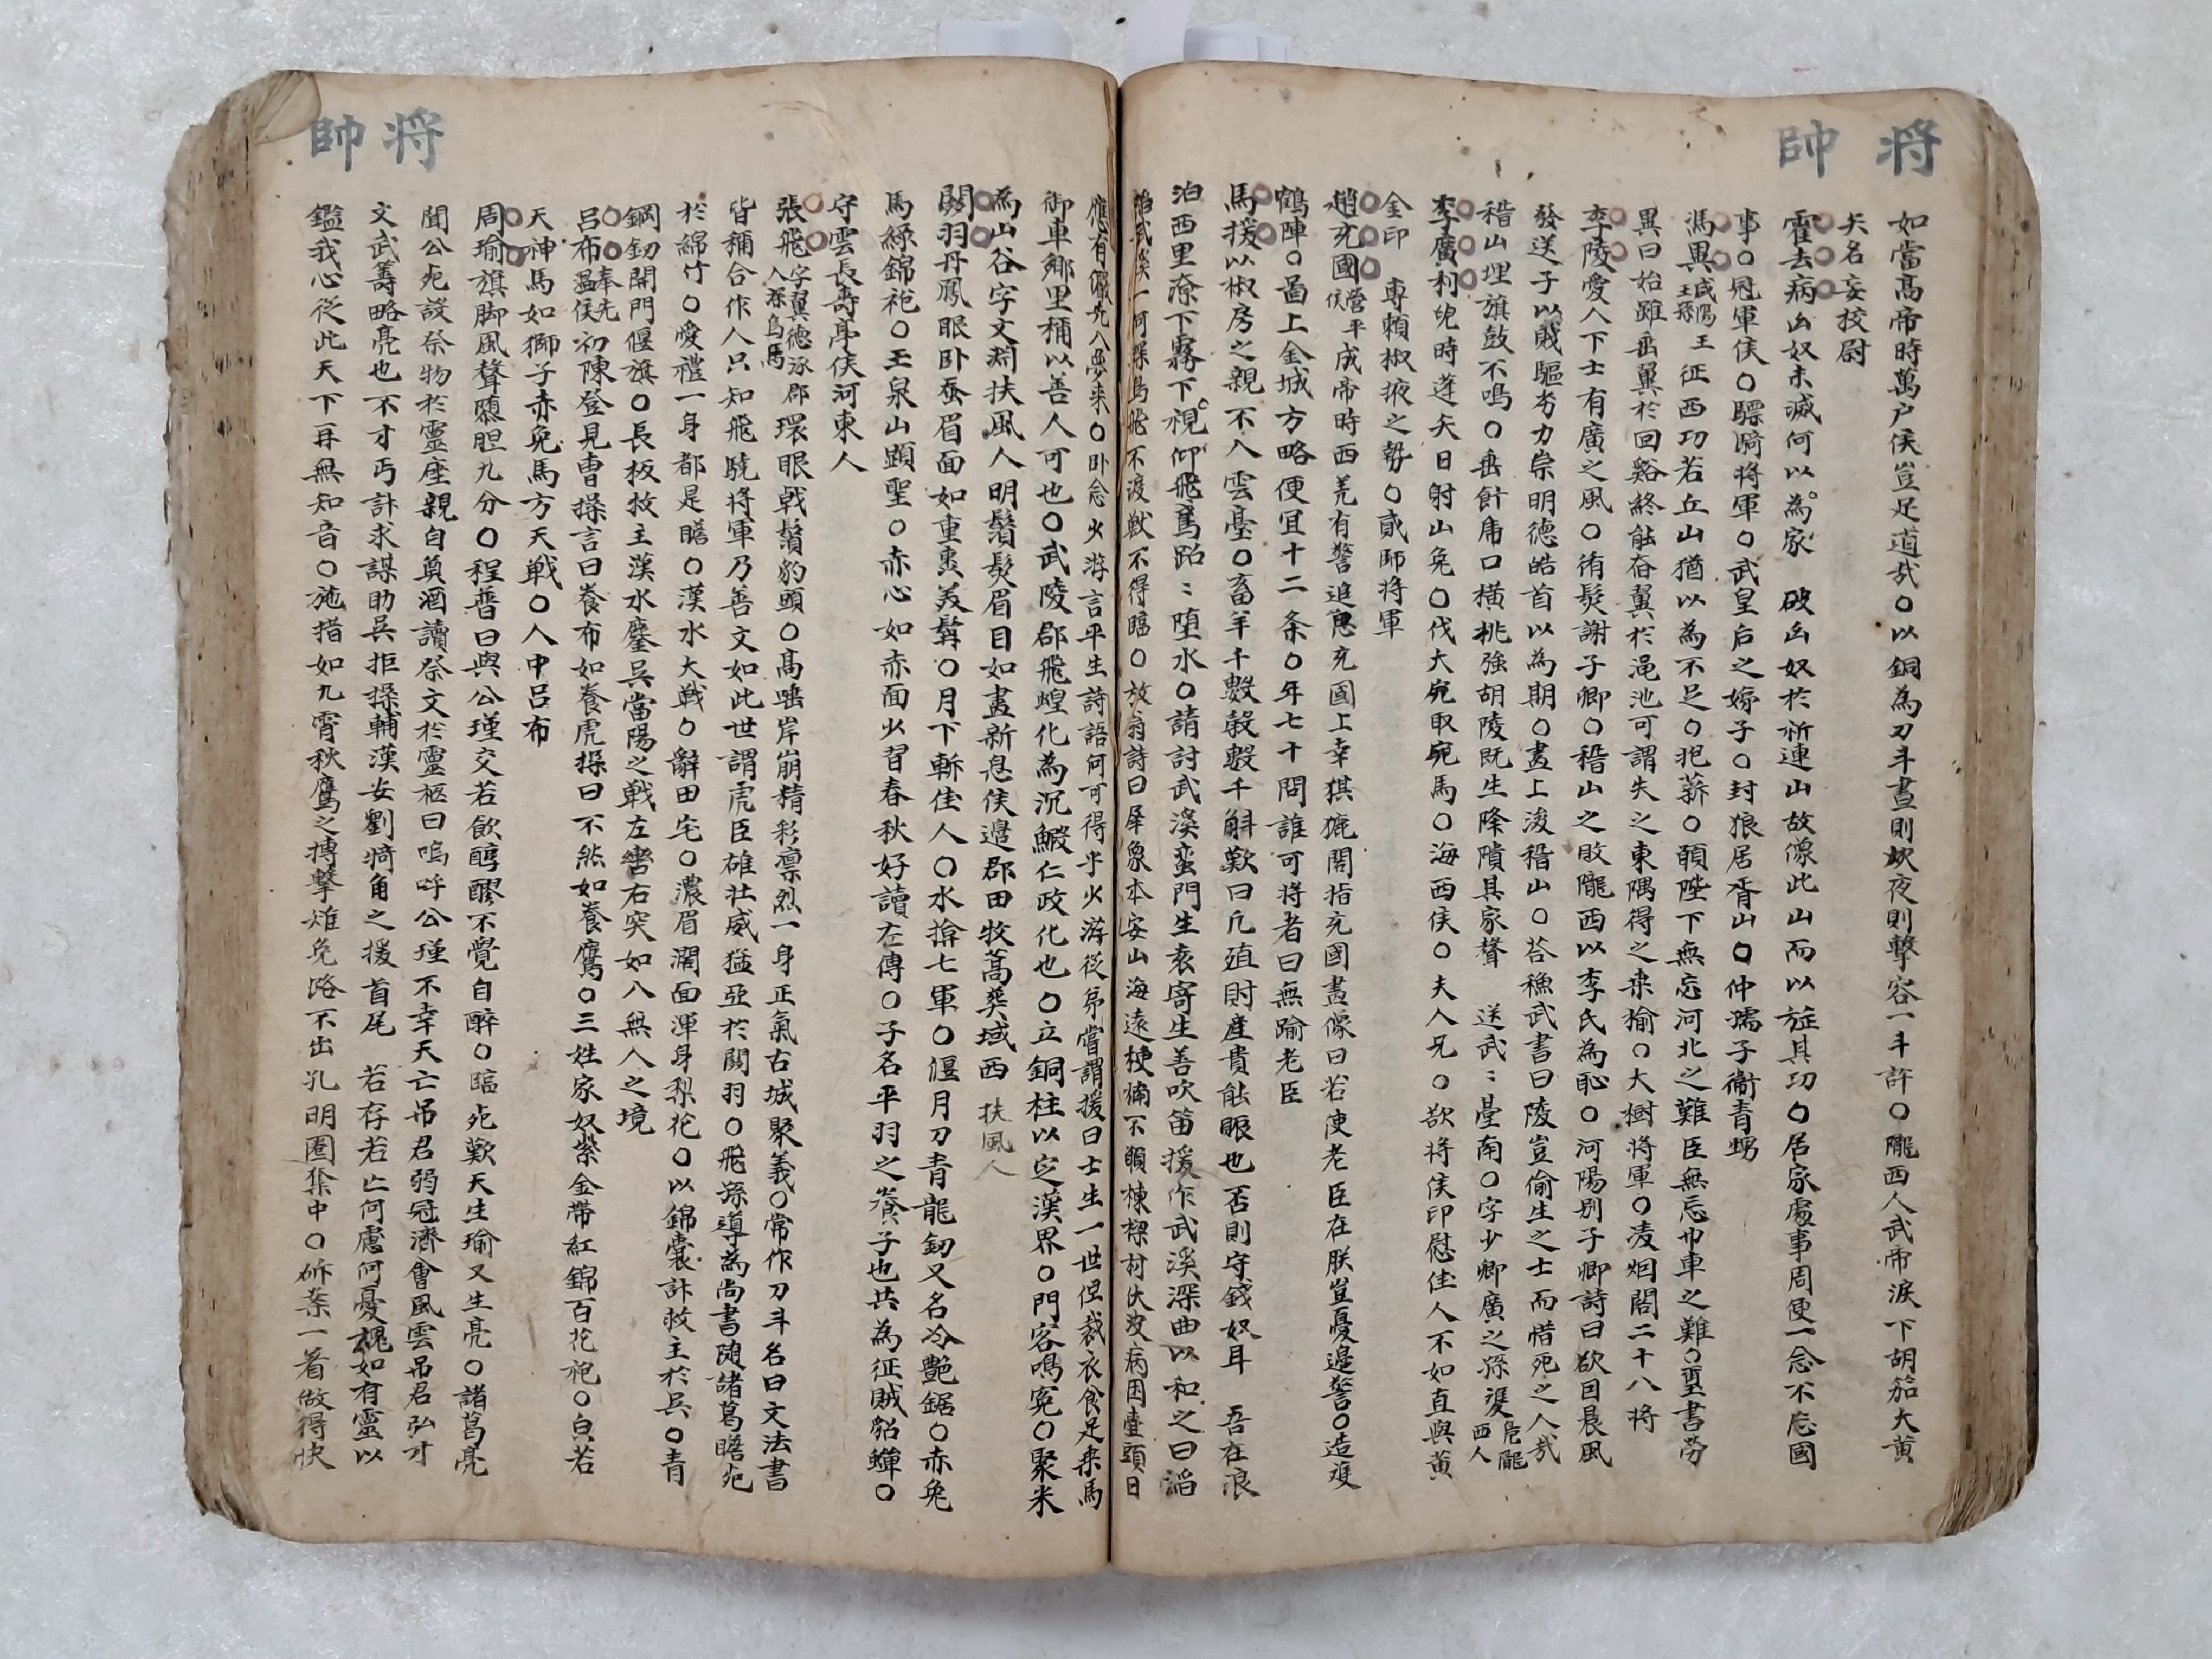 将帥
如當高帝時萬户侯豈足道哉○以銅為刀斗晝則炊夜則擊容一斗許○隴西人武帝淚下胡笳大黄
夫名妄校尉
霍去病凶奴未滅何以為家 破凶奴於祈連山故像此山而以旌其功○居家處事周使一念不忘國
事○冠軍侯○驃騎將軍○武皇后之嫁子○封狼居胥山○仲孺子衞青甥
馮異咸陽王孫王 征西功若丘山猶以為不足○祀薪○願陛下無忘河北之難臣無忘巾車之難○璽書勞
異曰始雖垂翼於回谿終能奋翼於渑池可謂失之東隅得之桑榆○大樹將軍○凌烟閣二十八將
李陵愛人下士有廣之風○侑髮謝子卿○稽山之敗隴西以李氏為恥○河陽別子卿詩曰欲因晨風
發送子以賎驅夯力崇明德皓首以為期○晝上浚稽山○荅穌武書曰陵豈偷生之士而惜死之人哉
稽山埋旗鼓不鳴○垂餌虎口横挑強胡陵旣生降隤其家聲 送武〻臺南○字少卿廣之孫
李廣利兒時逢矢日射山兔○伐大宛取宛馬○海西侯○夫人兄○欲将侯印慰佳人不如直與黄
金印 専頼椒掖之勢○貳師将軍
趙充國營平侯成帝時西羌有警追思充國上幸猉獹閣指充國畫像曰若使老臣在朕豈憂邉警○造
鶴陣○啚上金城方略便宜十二条○年七十問誰可将者曰無踰老臣
馬援以椒房之親不入雲臺○畜羊千數穀數千斛歎曰凡殖財産貴能賑也否則守錢奴耳 吾在浪
泊西里潦下霧下視仰飛鳶跕〻堕水○請討武溪蛮門生袁寄生善吹笛援作武溪深曲以和之曰滔
滔武溪一何深鳥飛不渡獣不得臨○放翁詩曰犀象本安山海遠楩楠不願棟樑材伏波病困壺頭日
将帥
應有儼先入夢来○卧念少游言平生詩語何可得乎少游從弟嘗謂援曰士生一世但裁衣食足乘馬
御車鄉里稱以善人可也○武陵郡飛蝗化為沉鰕仁政化也○立銅柱以定漢界○門客鳴寃○聚米
為山谷字文淵扶風人明鬚髮眉目如畫新息侯邉郡田牧蒿葬域西 扶風人
関羽丹鳳眼卧蚕眉面如重棗美髯○月下斬佳人○水擒七軍○偃月刀青龍釰又名冷艶鋸○赤兔
馬綠錦袍○玉泉山顕聖○赤心如赤面少習春秋好讀左傳○子名平羽之養子也共為征賊貂蟬○
守雲長壽亭侯河東人
張飛字翼德涿郡人孫烏馬 環眼戟鬚豹頭○高喝岸崩精彩凛烈一身正氣古城聚義○常作刀斗名曰文法書
皆稱合作人只知飛驍將軍乃善文如此世謂虎臣雄壮威猛亞於関羽○飛孫導為尚書随諸葛瞻死
於綿竹○嗳禮一身都是瞻○漢水大戦○辭田宅○濃眉濶面渾身梨花○以錦裳計救主於吳○青
鋼釰開門偃旗○長板救主漢水鏖吳當陽之戦左衝右突如入無人之境
呂布奉先温侯初陳登見曹操言曰養布如養虎操曰不然如養鷹○三姓家奴紫金帶紅錦百花袍○白若
天神馬如獅子赤兔馬方天戦○人中呂布
周瑜旗脚風聲隨胆九分○程普曰與公瑾交若飲醇醪不覺自醉○臨死歎天生瑜又生亮○諸葛亮
聞公死設祭物於靈座親自奠酒讀祭文於靈柩曰嗚呼公瑾不幸天亡吊君弱冠濟會風雲吊君弘才
文武籌略亮也不才丐計求謀助吳拒操輔漢安劉犄角之援首尾 若存若亡何慮何憂魂如有靈以
鑑我心從此天下再無知音○施措如九霄秋鷹之摶擊雉兔路不出孔明圈䋣中○斫案一着做得快